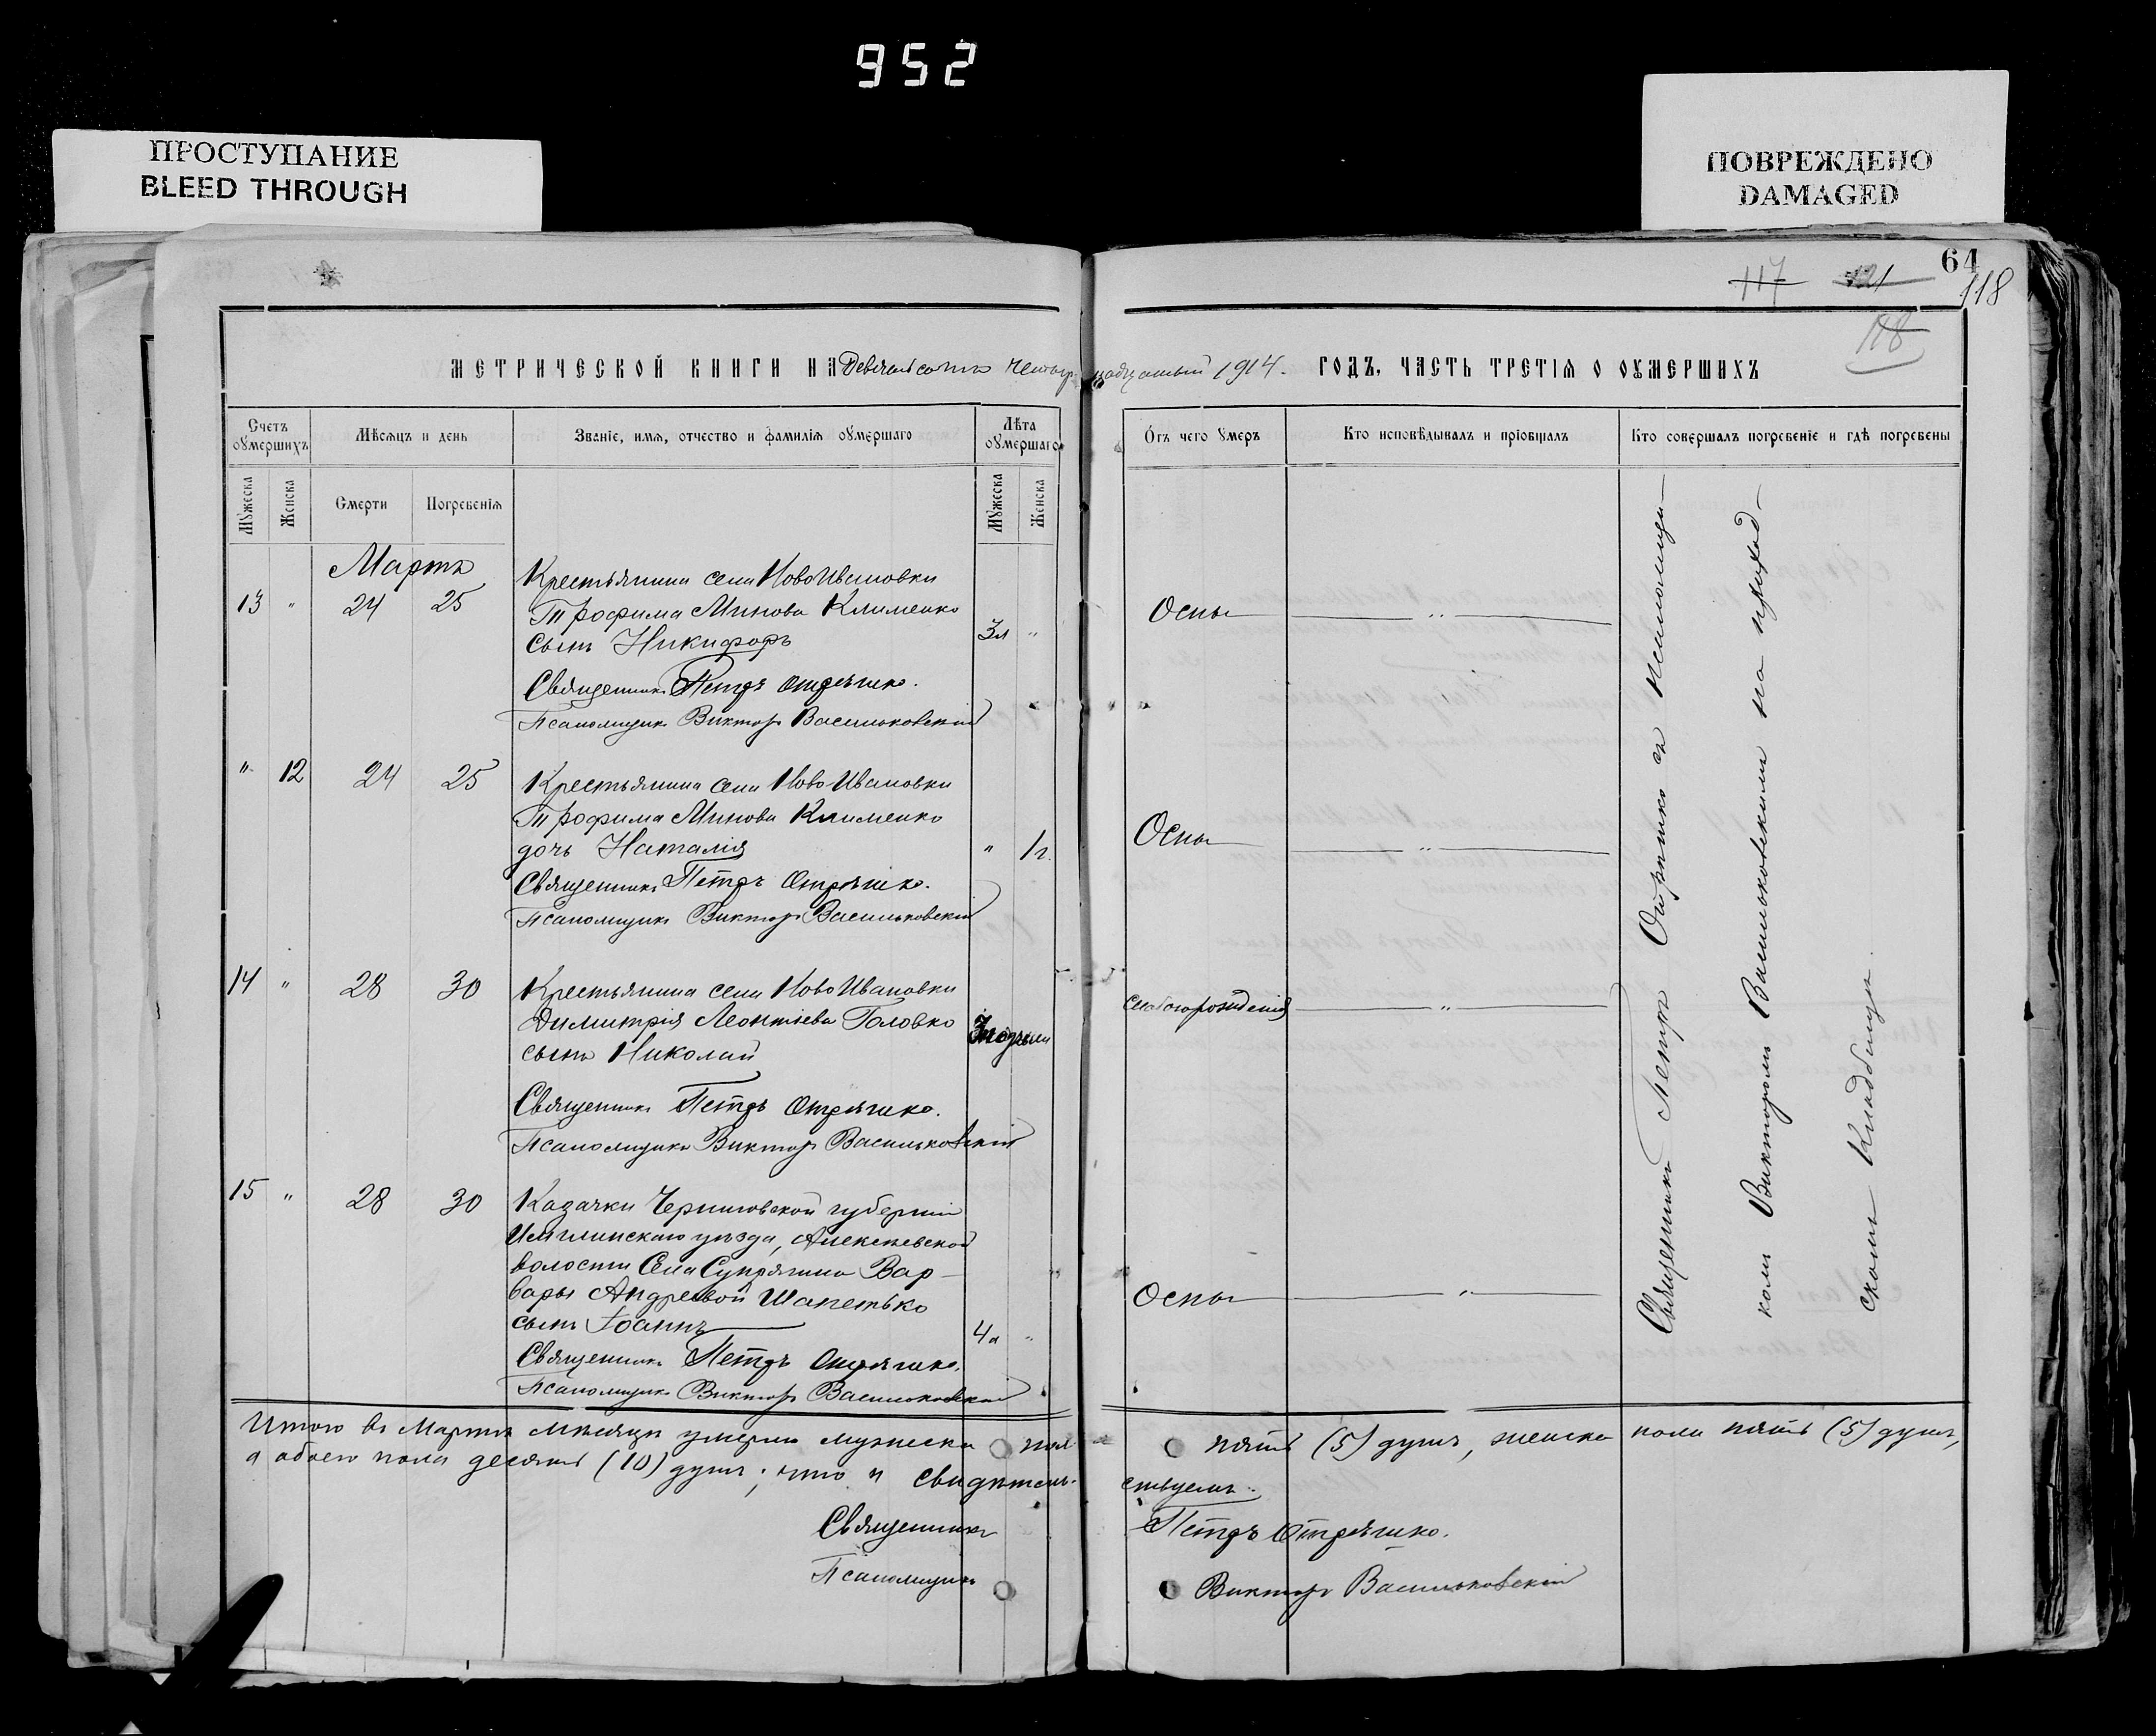 952
ПРОСТУПАНИЕ
BLEED THROUGH
ПОВРЕЖДЕНО
DAMAGED
64
117 121 118
118
МЕТРИЧЕСКОЙ КНИГИ НА Девятьсотъ четырнадцатый 1914. ГОДЪ, ЧАСТЬ ТРЕТІѦ О ОУМЕРШИХЪ
Счетъ оумершихъ
Мѣсѧцъ и день
Званіе, имѧ, отчество и фамиліѧ оумершаго
Лѣта оумершаго
Отъ чего умеръ
Кто исповѣдывалъ и пріобщалъ
Кто совершалъ погребеніе и гдѣ погребены
Мужеска
Женска
Смерти
Погребеніѧ
Мужеска
Женска
Марта
13 " 24 25
Крестьянина села НовоИвановки
Трофима Минова Клименко
сынъ Никифоръ
3л "
Оспы
"
Священникъ Петръ Отрѣшко.
Псаломщикъ Викторъ Васильковскій
" 12 24 25
Крестьянина села НовоИвановки
Трофима Минова Клименко
дочь Наталія
" 1г.
Оспы
"
Священникъ Петръ Отрѣшко.
Псаломщикъ Викторъ Васильковскій
14 " 28 30
Крестьянина села НовоИвановки
Димитрія Леонтіева Головко
сынъ Николай
слаборожденія
"
Священникъ Петръ Отрѣшко.
Псаломщикъ Викторъ Васильковскій
15 " 28 30
Казачки Черниговской губерніи
уѣзда, Алексѣевской
волости села Супрягина Вар-
вары Андреевой Шапетько
сынъ Іоаннъ
4л "
Оспы
"
Священникъ Петръ Отрѣшко.
Псаломщикъ Викторъ Васильковскій
Священникъ Петръ Отрѣшко съ псаломщи-
комъ Викторомъ Васильковскимъ на приход-
скомъ кладбищѣ.
Итого въ Мартѣ мѣсяцѣ умерло мужеска пола пять (5) душъ, женска пола пять (5) душъ,
а обоего пола десять (10) душъ; что и свидѣтель-
ствуемъ.
Священникъ Петръ Отрѣшко.
Псаломщикъ Викторъ Васильковскій